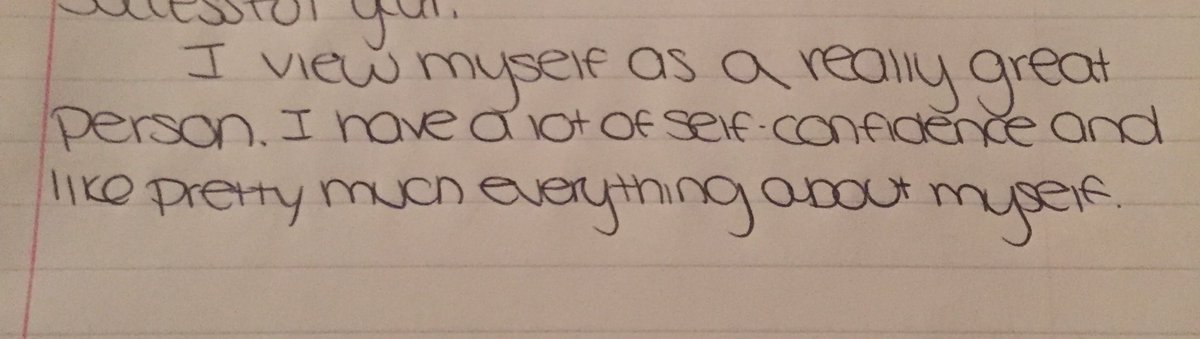 successful gal.
I view myself as a really great
person. I have a lot of self-confidence and
like pretty much everything about myself.